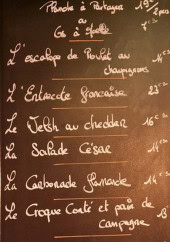 Planche à Partager 19€
2 pers
ou
7€
L'escalope de Poulet au
champignons 14€
L'Entrecôte française 23€
Le Welsh au cheddar 16€
La Salade César 14€
La Carbonade flamande 14€
Le Croque Comté et pain de
Campagne 13